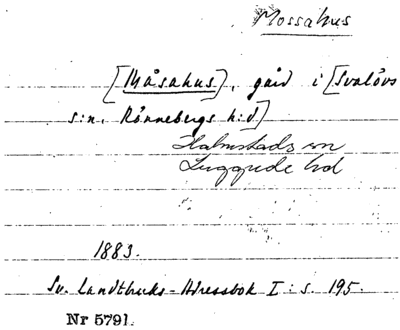 Mossahus
[Måsahus], gård i [Svalövs
s:n, Rönnebergs h:d]
Halmstads sn
Luggude hd
1883.
Sv. Landtbruks-Adressbok I: s. 195.
Nr 5791.